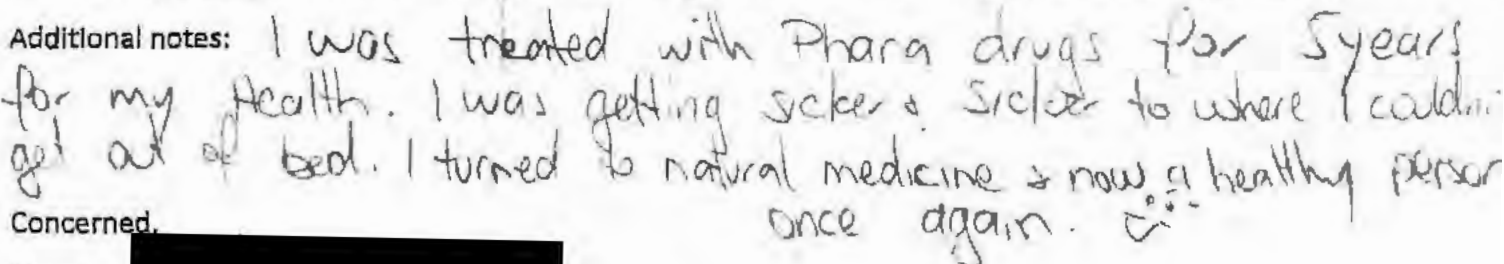 Additional notes: I was treated with Phara drugs for 5years
for my Health. I was getting sicker & sicker to where I couldn
get out of bed. I turned to natural medicine & now a healthy person
once again.
Concerned,